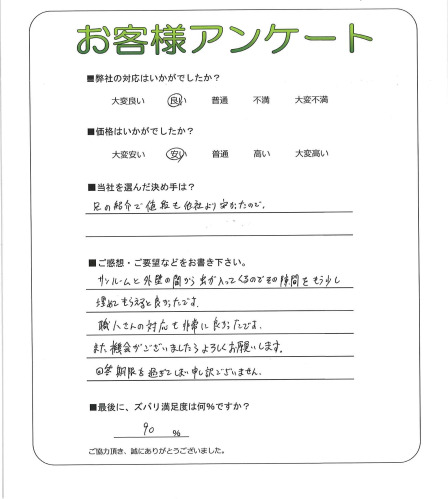 お客様アンケート
■弊社の対応はいかがでしたか?
大変良い 良い 普通 不満 大変不満
■価格はいかがでしたか?
大変安い 安い 普通 高い 大変高い
■当社を選んだ決め手は?
兄の紹介で値段も他社より安かったので。
■ご感想・ご要望などをお書き下さい。
サンルームと外壁の間から虫が入ってくるのでその隙間をもう少し
埋めてもらえると良かったです。
職人さんの対応も非常に良かったです。
また機会がございましたらよろしくお願いします。
回答期限を過ぎてしまい申し訳ございません。
■最後に、ズバリ満足度は何%ですか?
90 %
ご協力頂き、誠にありがとうございました。